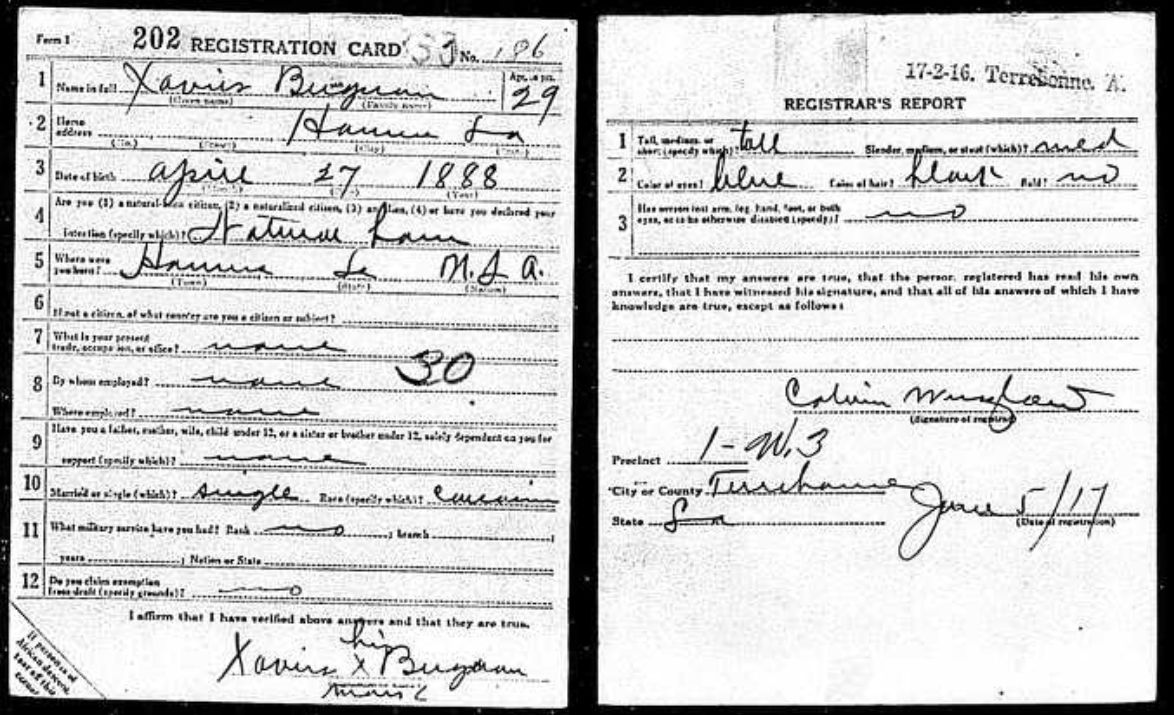 Form 1 202 REGISTRATION CARD No. 186
1 Name in full Xavier Bergeron Age, in yrs. 29
(Given name) (Family name)
2 Home address Houma La
(No.) (Street) (City) (State)
3 Date of birth April 27 1888
(Month) (Day) (Year)
4 Are you (1) a natural-born citizen, (2) a naturalized citizen, (3) an alien, (4) or have you declared your
intention (specify which)? Natural born
5 Where were you born? Houma La
(Town) (State) (Nation)
6 If not a citizen, of what country are you a citizen or subject?
7 What is your present
trade, occupation, or office? none
30
8 By whom employed? none
Where employed? none
9 Have you a father, mother, wife, child under 12, or a sister or brother under 12, solely dependent on you for
support (specify which)? none
10 Married or single (which)? Single Race (specify which)?
11 What military service have you had? Rank no ; branch ;
years ; Nation or State
12 Do you claim exemption
from draft (specify grounds)? no
I affirm that I have verified above answers and that they are true.
his
Xavier X Bergeron
mark
If person is of
African descent,
tear off this
corner
17-2-16. Terrebonne, A.
REGISTRAR'S REPORT
1 Tall, medium, or
short (specify which)? tall Slender, medium, or stout (which)? med
2 Color of eyes? blue Color of hair? black Bald? no
3 Has person lost arm, leg, hand, foot, or both
eyes, or is he otherwise disabled (specify)? no
I certify that my answers are true, that the person registered has read his own
answers, that I have witnessed his signature, and that all of his answers of which I have
knowledge are true, except as follows:
Calvin
(Signature of registrar)
Precinct 1-W.3
City or County Terrebonne June 5/17
State La (Date of registration)